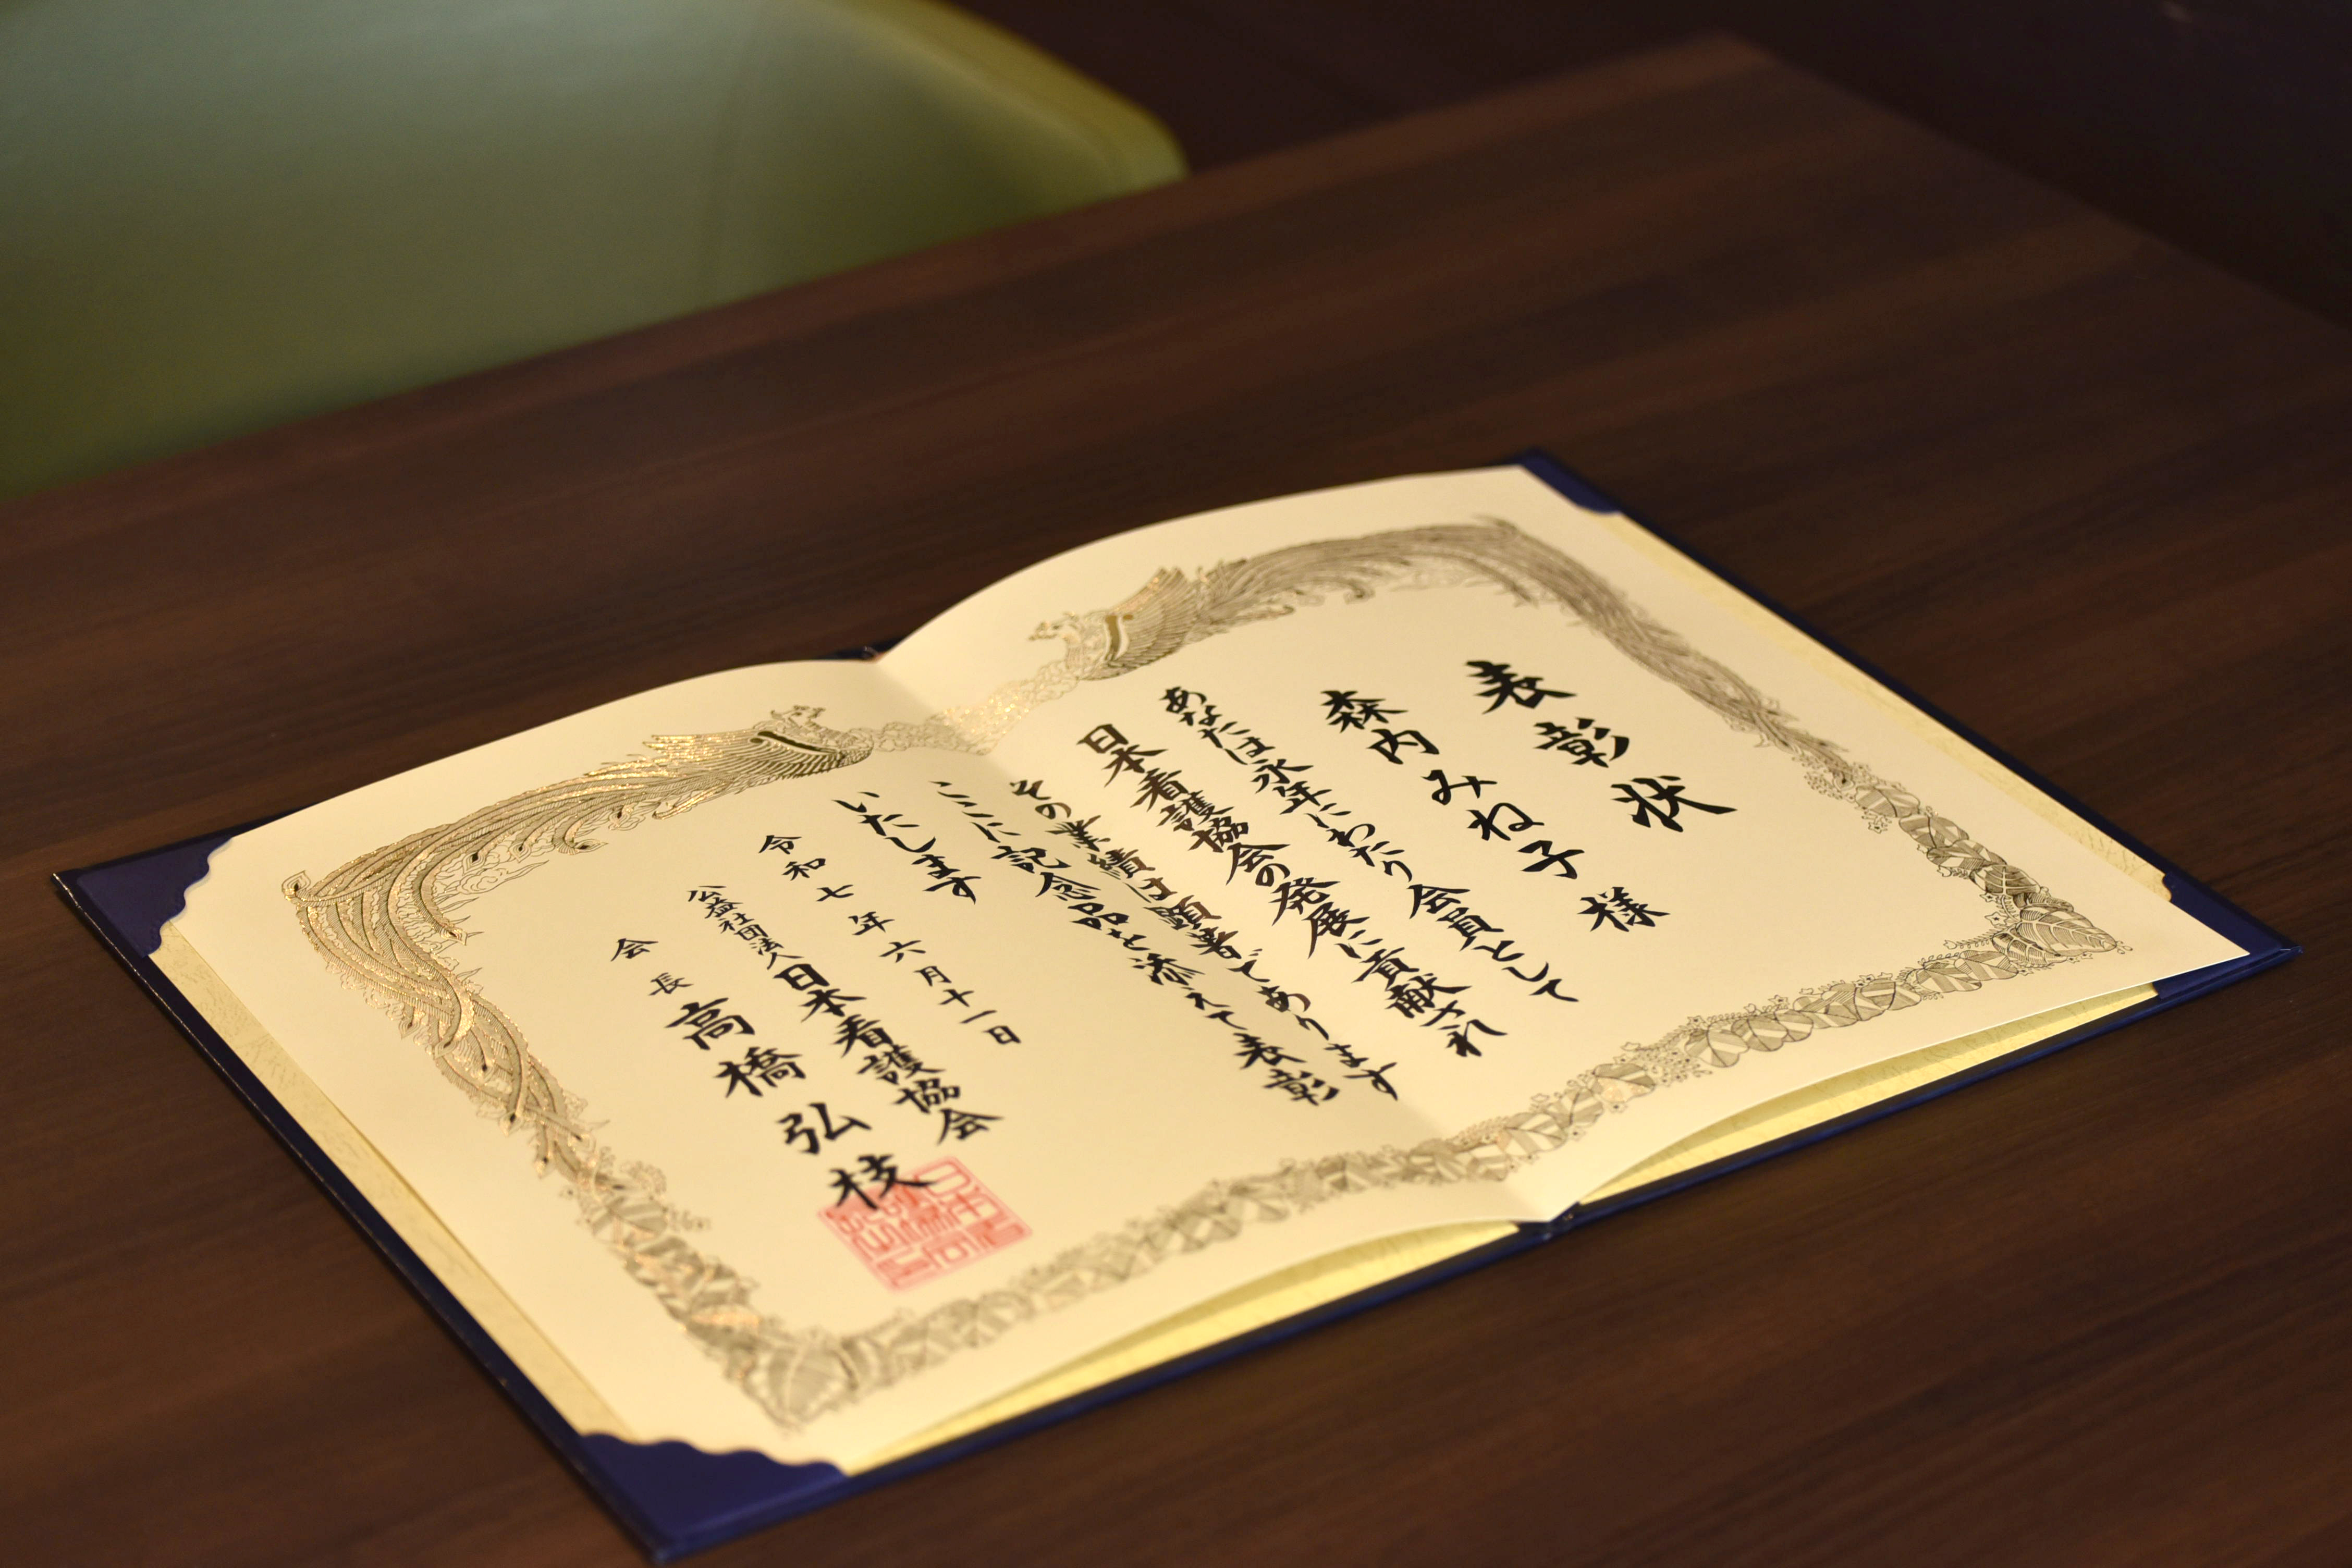 表彰状
森内みね子様
あなたは永年にわたり会員として
日本看護協会の発展に貢献され
その業績は顕著であります
ここに記念品を添えて表彰
いたします
令和七年六月十一日
公益社団法人日本看護協会
会長高橋弘枝